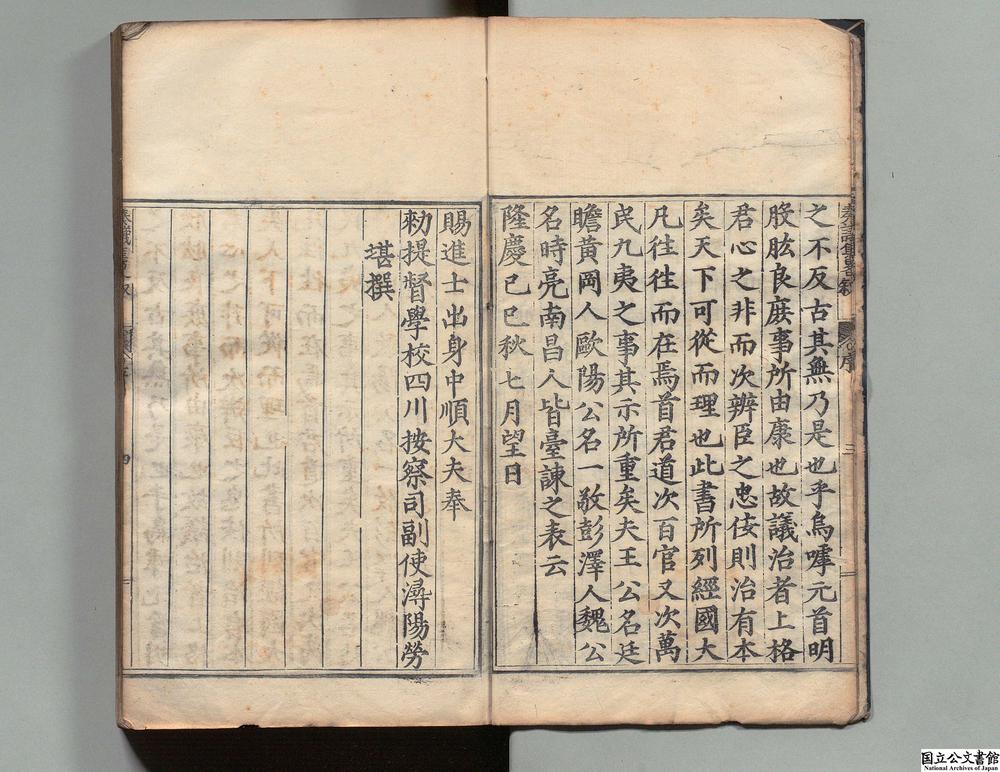 之不反古其無乃是也乎烏嘑元首明
股肱良庻事所由康也故議治者上格
君心之非而次辨臣之忠佞則治有本
矣天下可從而理也此書所列經國大
凡徃徃而在焉首君道次百官又次萬
民九夷之事其示所重矣夫王公名廷
瞻黃岡人歐陽公名一敬彭澤人魏公
名時亮南昌人皆臺諫之表云
隆慶己巳秋七月望日
三
賜進士出身中順大夫奉
勑提督學校四川按察司副使潯陽勞
堪撰
四
国立公文書館
National Archives of Japan